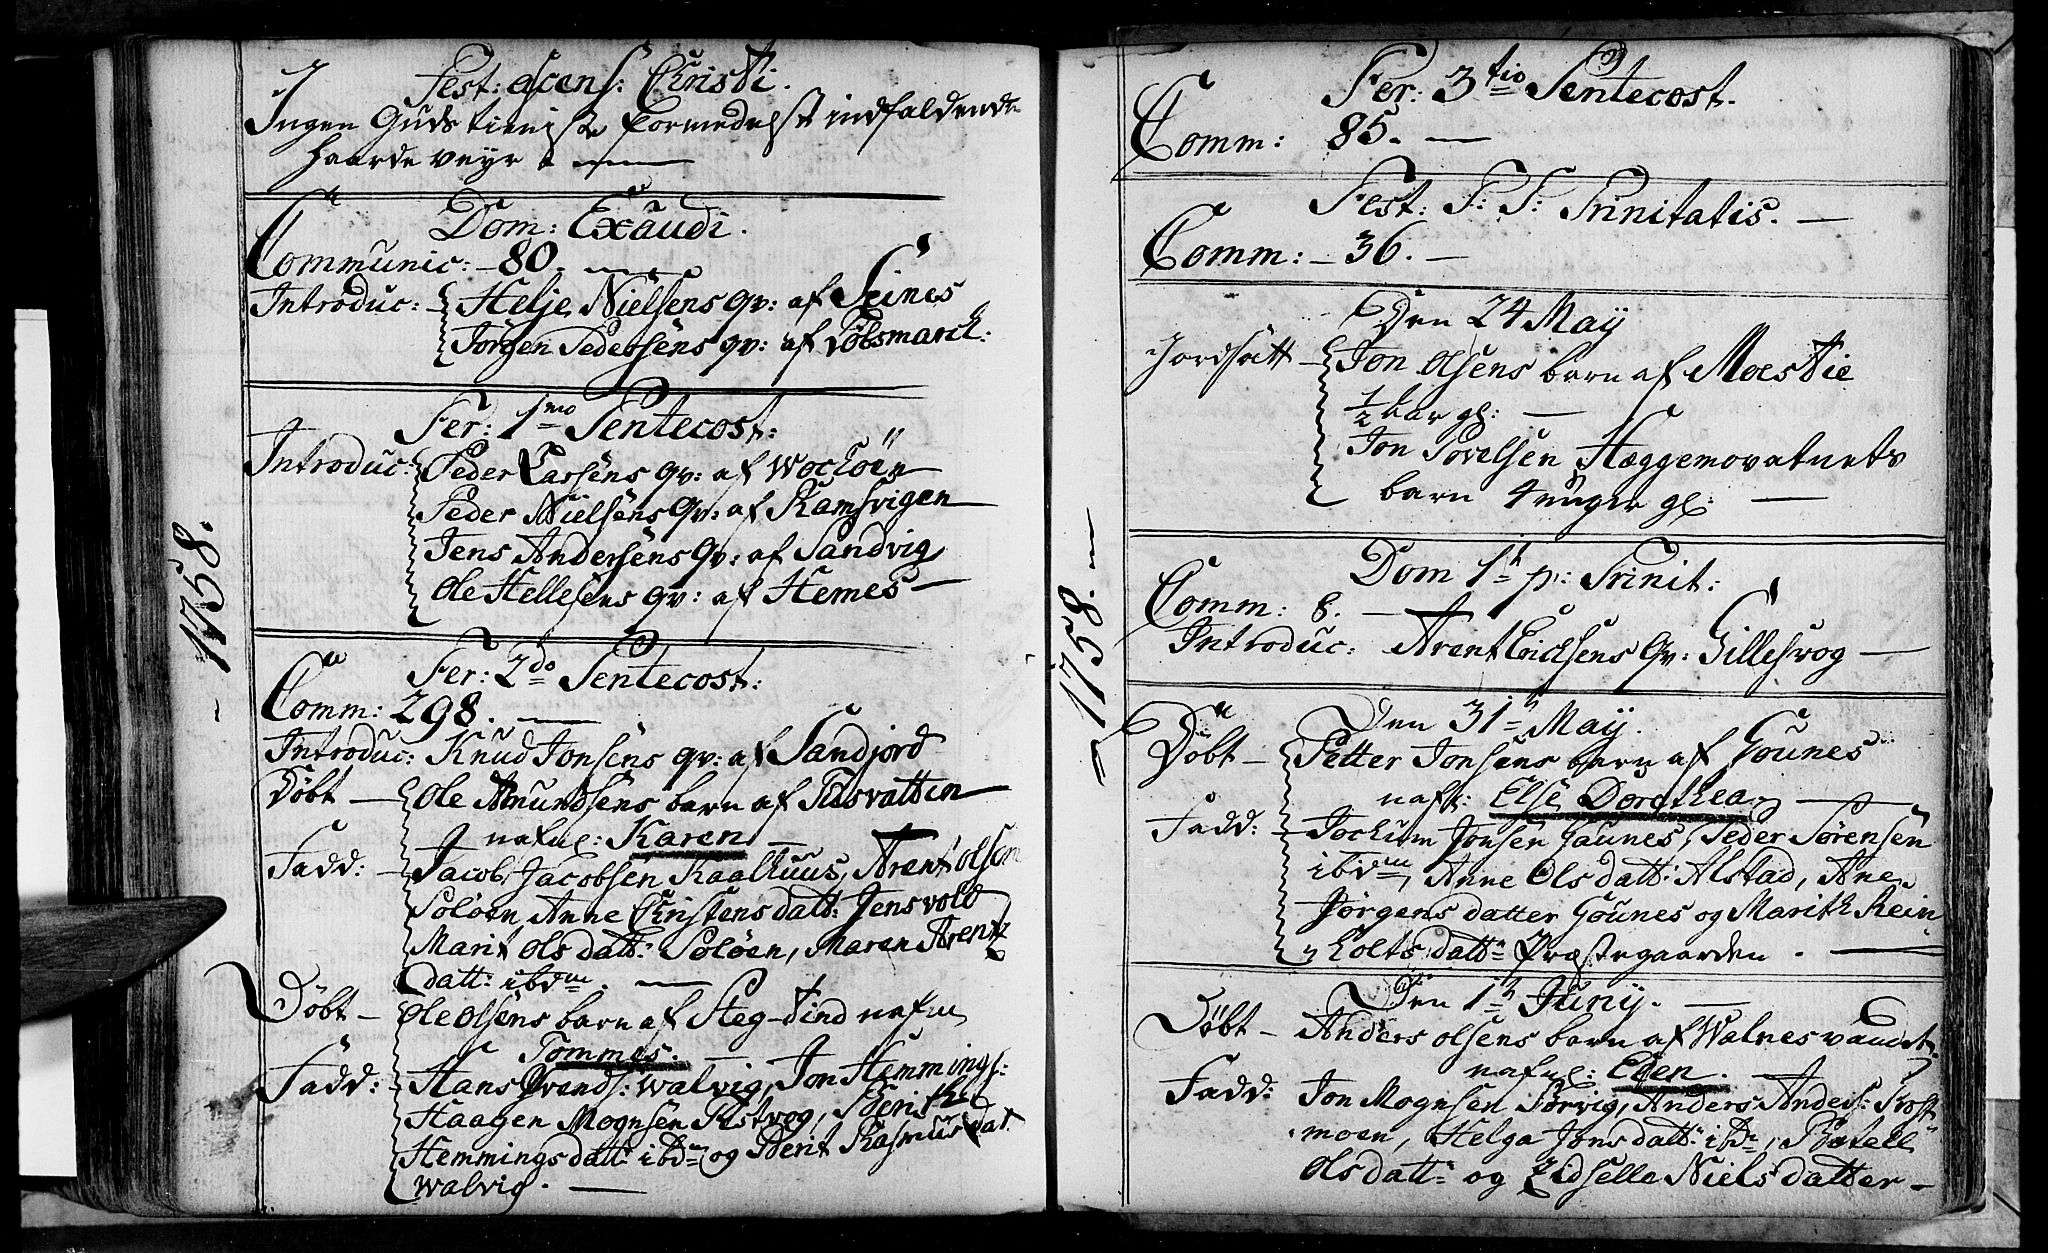 1758.
Fest: ascens: Christi.
Ingen Guds tieniste formedelst indfaldende
haarde veyr
Dom: Exaudi.
Communic: – 80.
Introduc: – Helje Nielsens qv: af Seines
Jörgen Pedersens qv: af Löbsmarck:
Fer: 1mo Pentecost:
Introduc: Peder Larsens qv: af Wochöen
Peder Nielsens qv: af Ramsvigen
Jens Andersens qv: af Sandvig
Ole Hellesens qv: af Hemes –
Fer: 2do Pentecost:
Comm: 298. –
Introduc: Knud Jonsens qv: af Sandjord
Döbt – Ole Amundsens barn af Tilsvatten
nafnl: Karen –
Fadd: – Jacob Jacobsen Kaalhuus, Arent olsen
Solöen, Anne Christens datt: Jensvold
Marit Ols datt: Solöen, Maren Arentz
datt: ibdm. –
Döbt – Ole Olsens barn af Steg-tind nafnl
Tommes. –
Fadd: – Hans Arends: Walvig, Jon Hemmings:
Haagen Mognsen Tistvog, Berith
Hemmings datt: ibdm og Berit Rasmus dat
Walvig. –
– 1758. –
Fer: 3tio Pentecost.
Comm: 85. –
Fest: S: S: Trinitatis. –
Comm: – 36. –
Den 24 May
Jordsatt – Jon Olsens barn af Moestie
1/2 aar gl: –
Jon Povelsen Hæggemovatnets
barn 4 uger gl: –
Dom 1h p: Trinit:
Comm: 8. –
Introduc: Arent Erichsens qv: Gillesvog –
Den 31h May.
Döbt – Petter Jonsens barn af Gounes
nafl: Else Dorothea –
Fadd: – Jochum Jonsen Gaunes, Peder Sörensen
ibdm, Anne Ols datt: Alstad, Ane
Jörgens datter Gounes og Marith Rein
holts datt: Præstegaarden. –
Den 1h Juny. –
Döbt – Anders olsens barn af Walnesvandet
nafnl: Elen.
Fadd: Jon Mognsen Torvig, Anders Anders:
moen, Helga Jons datt: ibdm,
Ols datt: og Zidselle Niels datter –